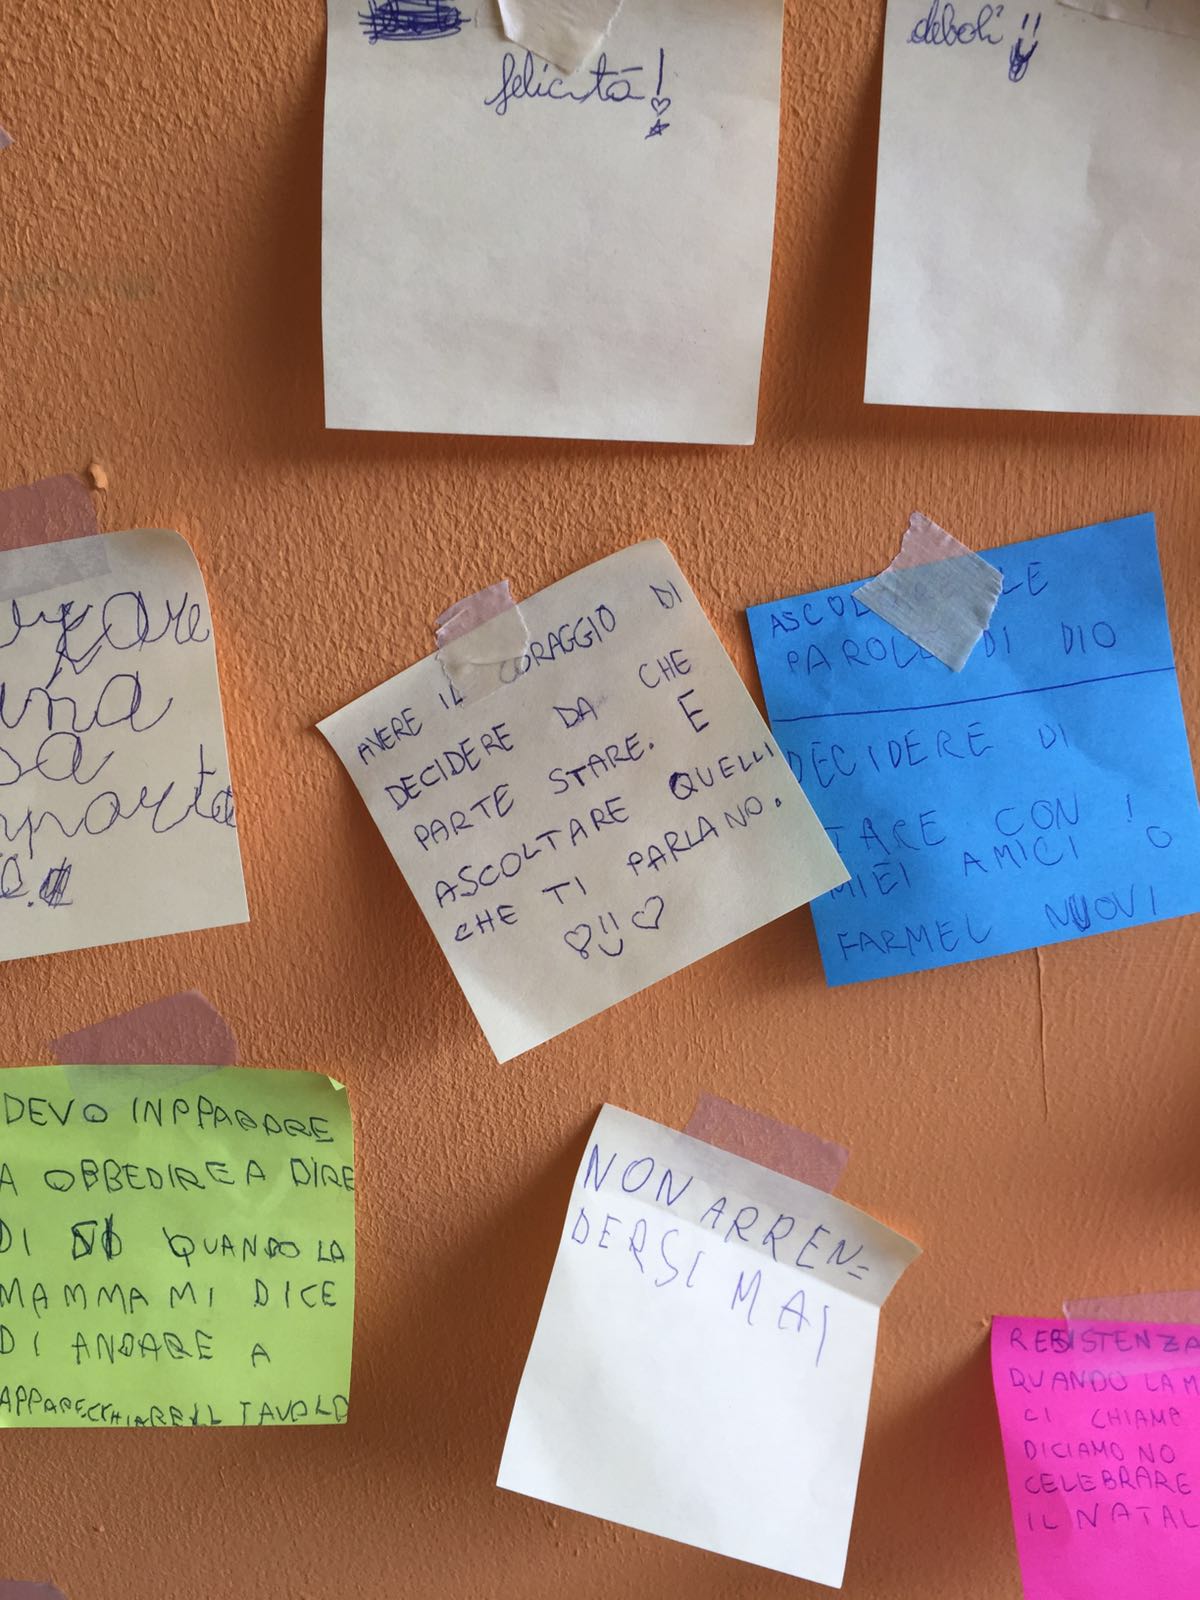 felicità!
deboli !!
AVERE IL CORAGGIO DI
DECIDERE DA CHE
PARTE STARE. E
ASCOLTARE QUELLI
CHE TI PARLANO.
PAROLE DI DIO
DECIDERE DI
CON I
MIEI AMICI O
FARMEL NUOVI
DEVO INPPARARE
A OBBEDIRE A DIRE
DI SI QUANDO LA
MAMMA MI DICE
DI ANDARE A
APPARECCHIARE IL TAVOLO
NON ARREN=
DERSI MAI
RESISTENZA
QUANDO LA M
CI CHIAMA
DICIAMO NO
CELEBRARE
IL NATAL